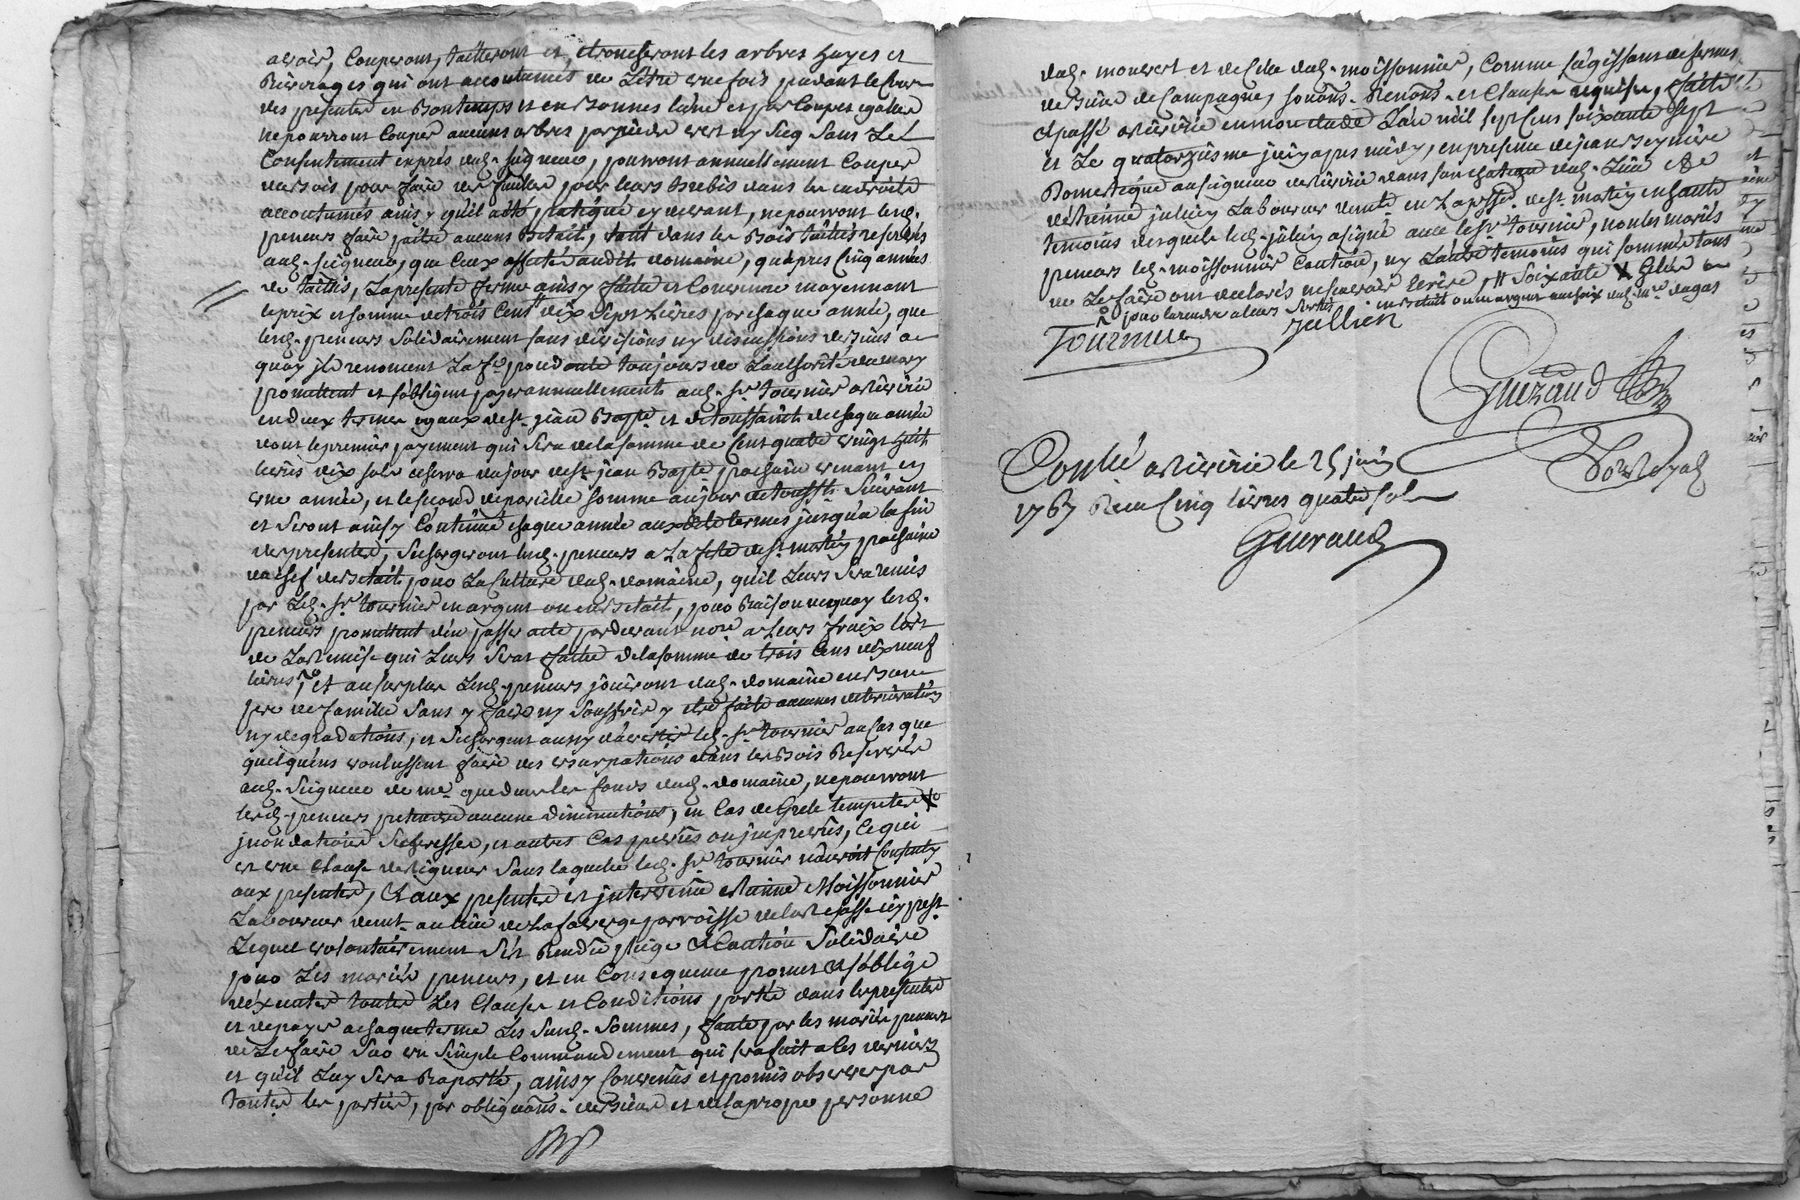 avoir, Couperont, tailleront et, etroncheront les arbres hayes et
Riverages qui ont accoutumés de L'être une fois pendant le Cour
des presentes en Bontemps et en Bonnes lune et par Coupes egalles
ne pourront Couper aucuns arbres par pieds vert ny Secq Sans Le
Consentement exprés dud. seigneur, pourront annuellement Couper
du bois pour faire des feuilles pour leurs brebis dans les endroits
accoutumés ainsy qu'il a été pratiqué cy devant, ne pourront lesd.
preneurs faire paitre aucuns Bétail, tant dans les Bois taillis reservés
aud. seigneur, que Ceux affectés audit domaine, qu'apres Cinq années
de taillis, La presente ferme ainsy faite et Convenue moyennant
le prix et somme de trois Cent dix sept Livres par chaque année, que
lesd. preneurs Solidairement sans divisions ny discussions de biens a
quoy ils renoncent La fe. procedante toujours de L'authorité du mary
promettent et s'obligent payer annuellement aud. Sr. tournier a Riverie
en deux termes egaux de St. jean Bapte. et de toussaints de chaque année
dont le premier payement qui Sera de la somme de Cent quatre vingt huit
livres dix sols a du jour de St. jean Bapte. prochain venant en
une année, et le second de pareille somme au jour de toussts. Suivant
et Seront ainsy Continué chaque année aux dits termes jusqu'a la fin
des presentes, Se chargeront lesd. preneurs a La fete de St. martin prochaine
du chef de bétail pour La Culture dud. domaine, qu'il Leurs Sera remis
par Led. Sr. tournier en argent ou en Bétail, pour Raison de quoy lesd.
preneurs promettent d'en passer acte pardevant nore. a Leurs fraix lors
de La remise qui Leurs Serat faitte de la somme de trois Cens dix neuf
livres, et au surplus Lesd. preneurs jouiront dud. domaine en bon
pere de famille Sans y faire ny Souffrir y etre faite aucunes deteriorations
ny degradations, et Se chargent aussy d'avertir led. Sr. tournier au Cas que
quelqu'uns voulussent faire des usurpations dans les Bois Reservés
aud. Seigneur de me. que dans les fonds dud. domaine, ne pourront
lesd. preneurs pretendre aucune diminutions, en Cas de Grele tempetes
jnondations Secheresse, et autres Cas prevûs ou jmprevûs, Ce qui
est une Clause de rigueur Sans laquelle led. Sr. tournier n'auroit Consenty
aux presentes, Et aux presentes est jntervenû etienne Moissonnier
Laboureur demt. au lieu de La faverge parroisse de icy prest.
Lequel volontairement S'est Rendû pleige & Caution Solidaire
pour Les mariés preneurs, et en Consequence promet & s'oblige
d'exccuter toutes Les Clauses et Conditions portée dans les presentes
et de payer a chaque terme Les Susd. Sommes, faute par les mariés preneurs
de Le faire Sur un Simple Commandement qui sera fait a Ces derniers
et qu'il Luy Sera Raporté, ainsy Convenûs et promis observer par
toutes les parties, par obligaons. de biens et de la propre personne
dud. mouvert et de Celle dud. moissonnier, Comme s'agissant de fermes
de biens de Campagne, soumons. Renons. et Clauses requises, fait
et passé a Riverie en mon etude L'an mil sept Cens soixante Sept
et Le quatorzième juin apres midy, en presence de jean
Domestique au seigneur de Riverie dans son chateau dud. Lieu et de
d'etienne jullien Laboureur demt. en La ppsse. de St. martin en haute
temoins desquels led. jullien a signé avec le Sr. tournier, non les mariés
preneurs led. moissonnier Caution, ny L'autre temoins qui sommés tous
de Le faire ont declarés ne Scavoir Ecrire, # Soixante X Gelée
pour la rendre a leurs Sorties en bétail ou en argent au choix dud. Me. dugas
Tournier
Jullien
Gueraud
Conlé a Riverie le 25 juin
1767 Recu Cinq livres quatre sols
Gueraud